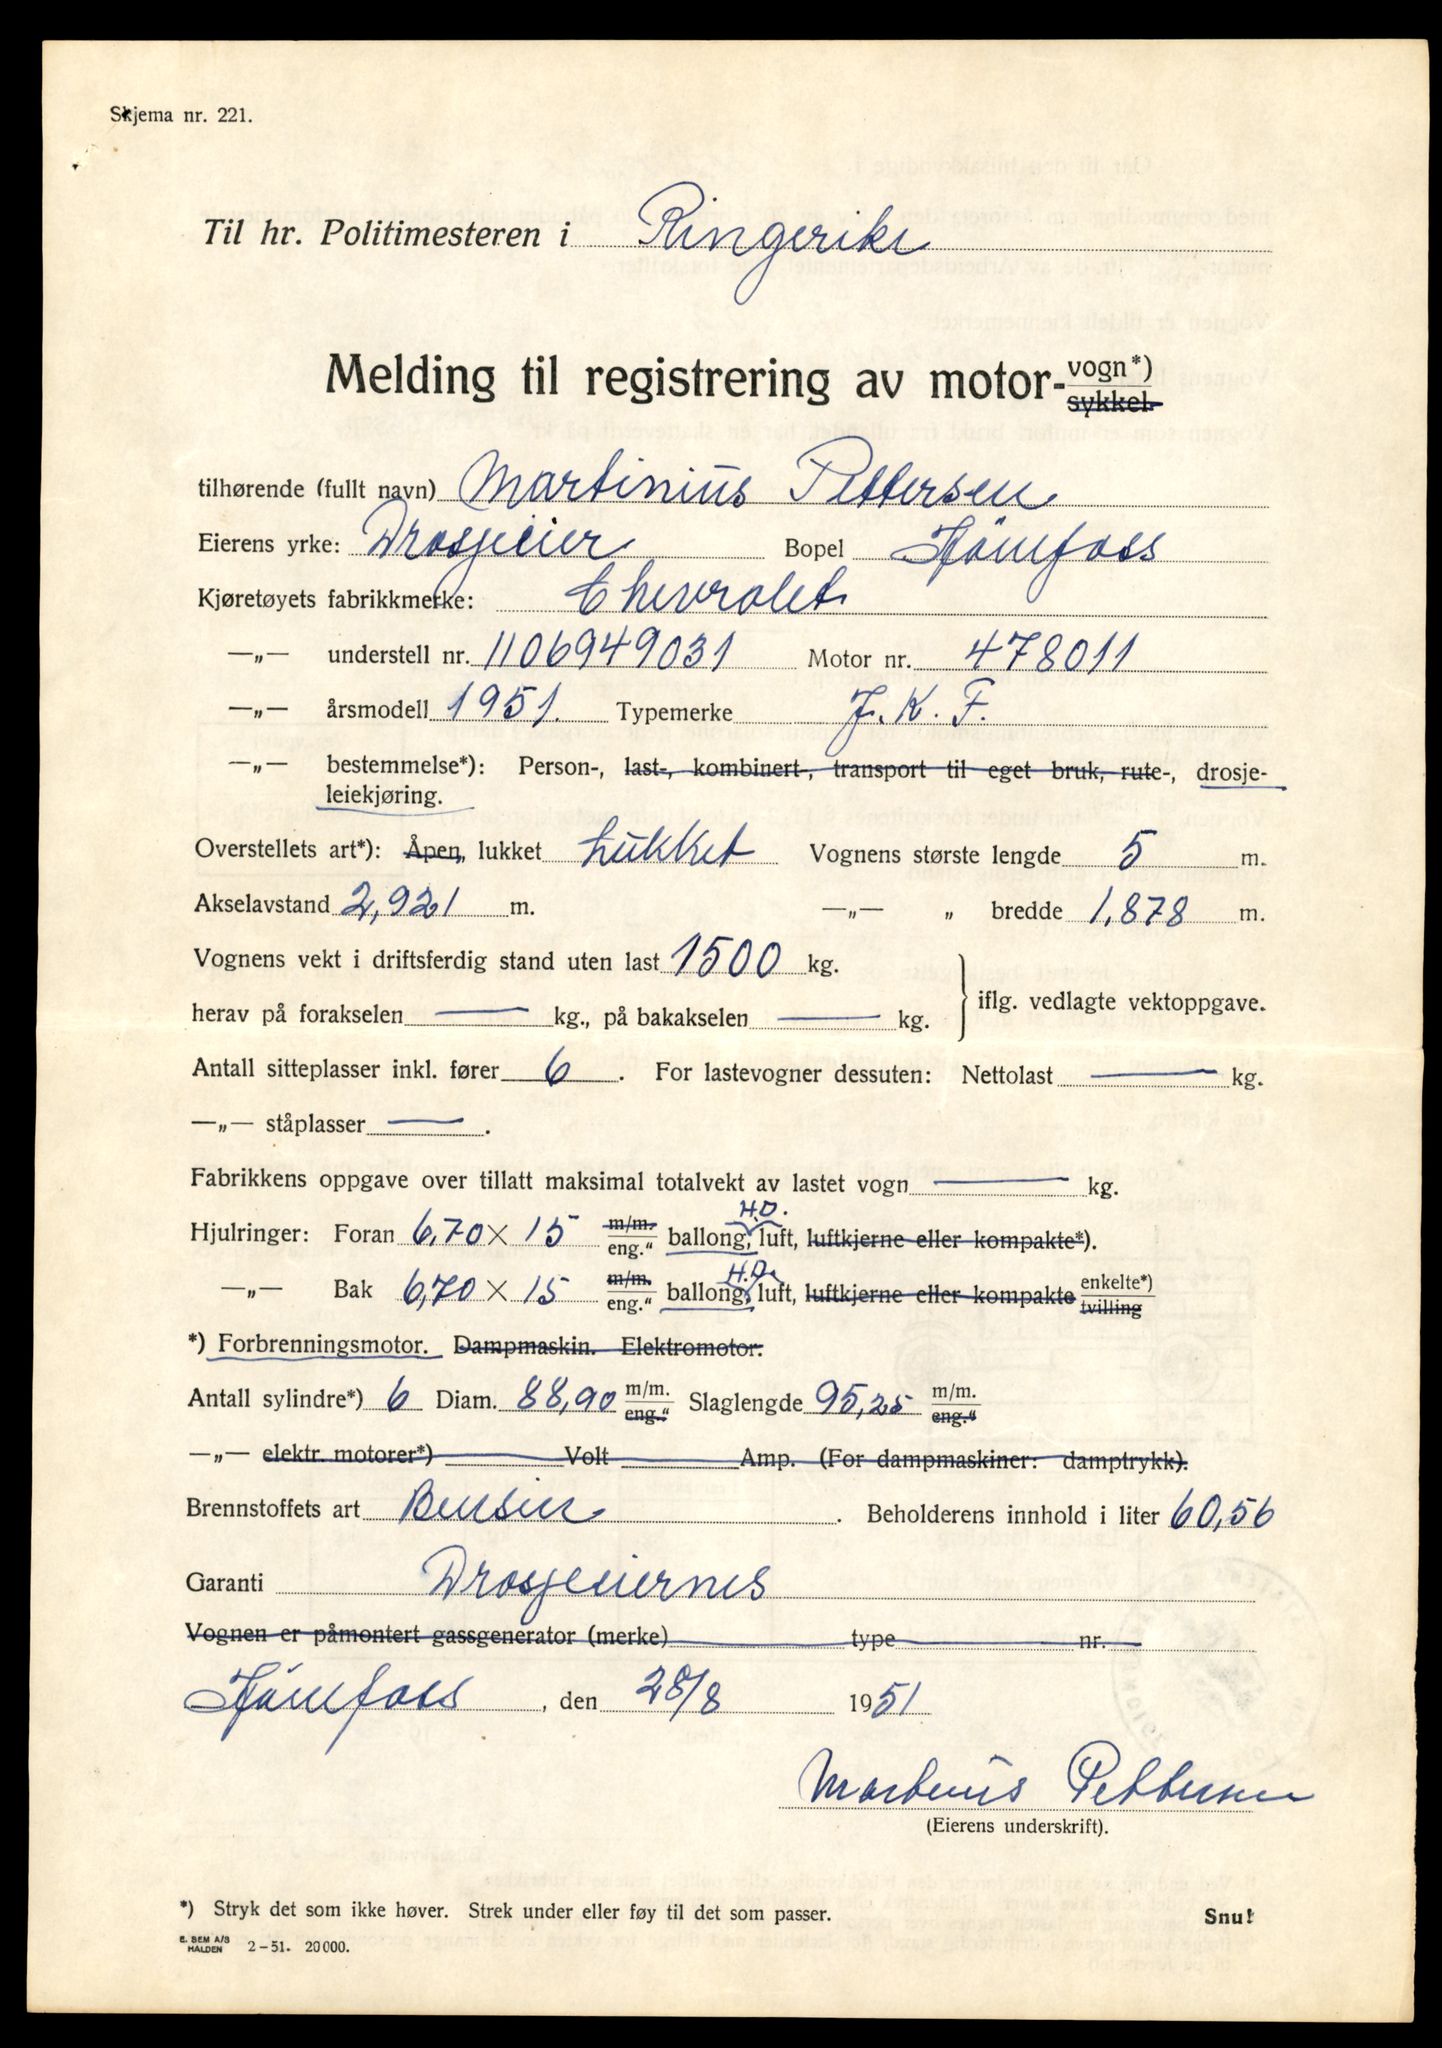 Skjema nr. 221.
Til hr. Politimesteren i Ringerike
Melding til registrering av motor-vogn*) sykkel.
tilhørende (fullt navn) Martinius Pettersen
Eierens yrke: Drosjeeier Bopel Hønefoss
Kjøretøyets fabrikkmerke: Chevrolet
—„— understell nr. 1106949031 Motor nr. 478011
—„— årsmodell 1951. Typemerke J.K.F.
—„— bestemmelse*): Person-, last-, kombinert-, transport til eget bruk, rute-, drosje-
leiekjøring.
Overstellets art*): Åpen, lukket Lukket Vognens største lengde 5 m.
Akselavstand 2,921 m. —„— „ bredde 1,878 m.
Vognens vekt i driftsferdig stand uten last 1500 kg.
herav på forakselen — kg., på bakakselen — kg. iflg. vedlagte vektoppgave.
Antall sitteplasser inkl. fører 6. For lastevogner dessuten: Nettolast — kg.
—„— ståplasser —.
Fabrikkens oppgave over tillatt maksimal totalvekt av lastet vogn — kg.
H.D.
Hjulringer: Foran 6,70 × 15 m/m. eng.“ ballong, luft, luftkjerne eller kompakte*).
H.D.
—„— Bak 6,70 × 15 m/m. eng.“ ballong, luft, luftkjerne eller kompakte enkelte*) tvilling
*) Forbrenningsmotor. Dampmaskin. Elektromotor.
Antall sylindre*) 6 Diam. 88,90 m/m. eng.“ Slaglengde 95,25 m/m. eng.“
—„— elektr. motorer*) Volt Amp. (For dampmaskiner: damptrykk).
Brennstoffets art Bensin. Beholderens innhold i liter 60,56
Garanti Drosjeeiernes
Vognen er påmontert gassgenerator (merke) type nr.
Hønefoss, den 28/8 1951
Martinius Pettersen
(Eierens underskrift).
*) Stryk det som ikke høver. Strek under eller føy til det som passer. Snu!
E. SEM A/S
HALDEN 2-51. 20000.